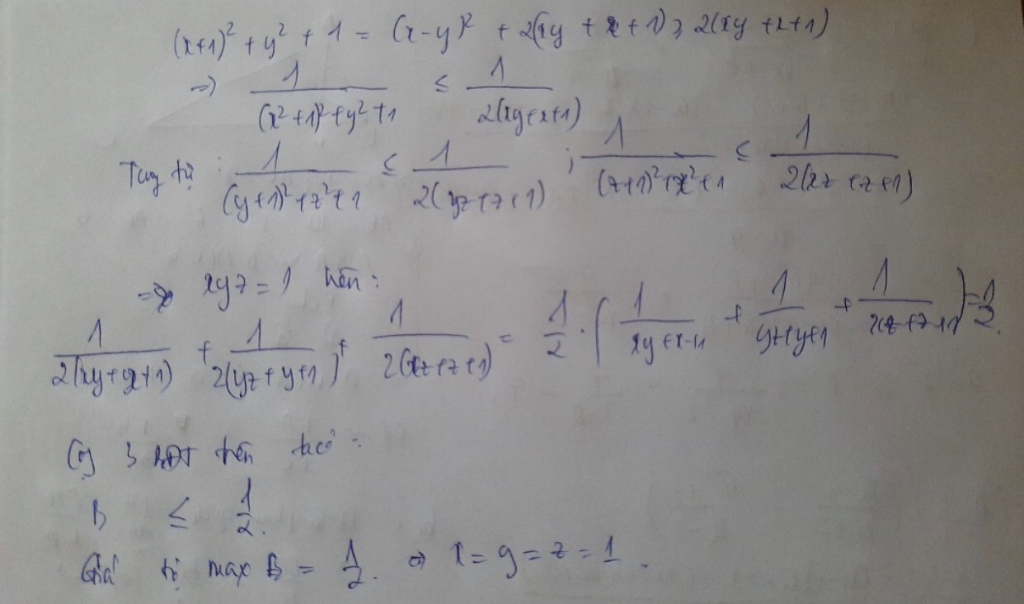 (x+1)² + y² + 1 = (x-y)² + 2(xy + x + 1) ⩾ 2(xy + x + 1)
=> 1/((x²+1)² + y² + 1) ≤ 1/(2(xy+x+1))
Tương tự : 1/((y+1)² + z² + 1) ≤ 1/(2(yz+z+1)) ; 1/((z+1)² + x² + 1) ≤ 1/(2(xz+z+1))
=> xyz = 1 nên :
1/(2(xy+x+1)) + 1/(2(yz+y+1)) + 1/(2(xz+z+1)) = 1/2 · (1/(xy+x+1) + 1/(yz+y+1) + 1/(xz+z+1)) = 1/2.
3 BĐT trên ta có :
B ≤ 1/2.
Giá trị max B = 1/2. => x = y = z = 1.